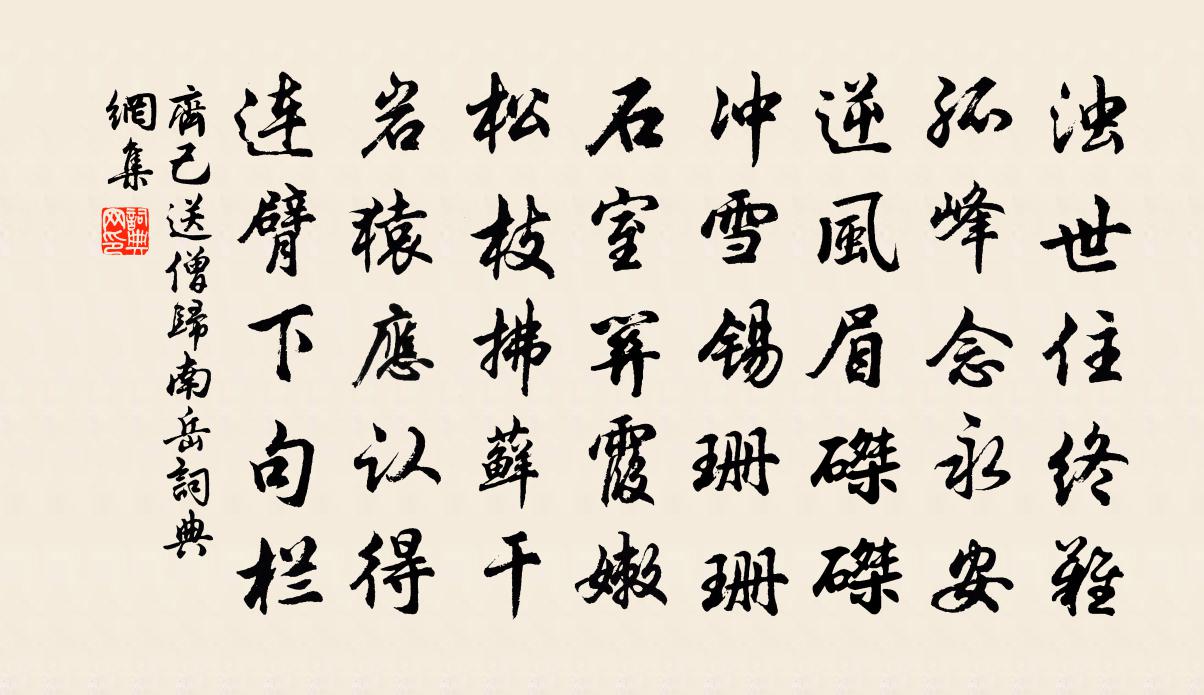 浊世住终难
孤峰念永安
逆風眉磔磔
冲雪锡珊珊
石室开霞嫩
松枝拂蘚干
岩猿應认得
连臂下句栏
齊己送僧歸南岳詞典
網集
詞典
网印